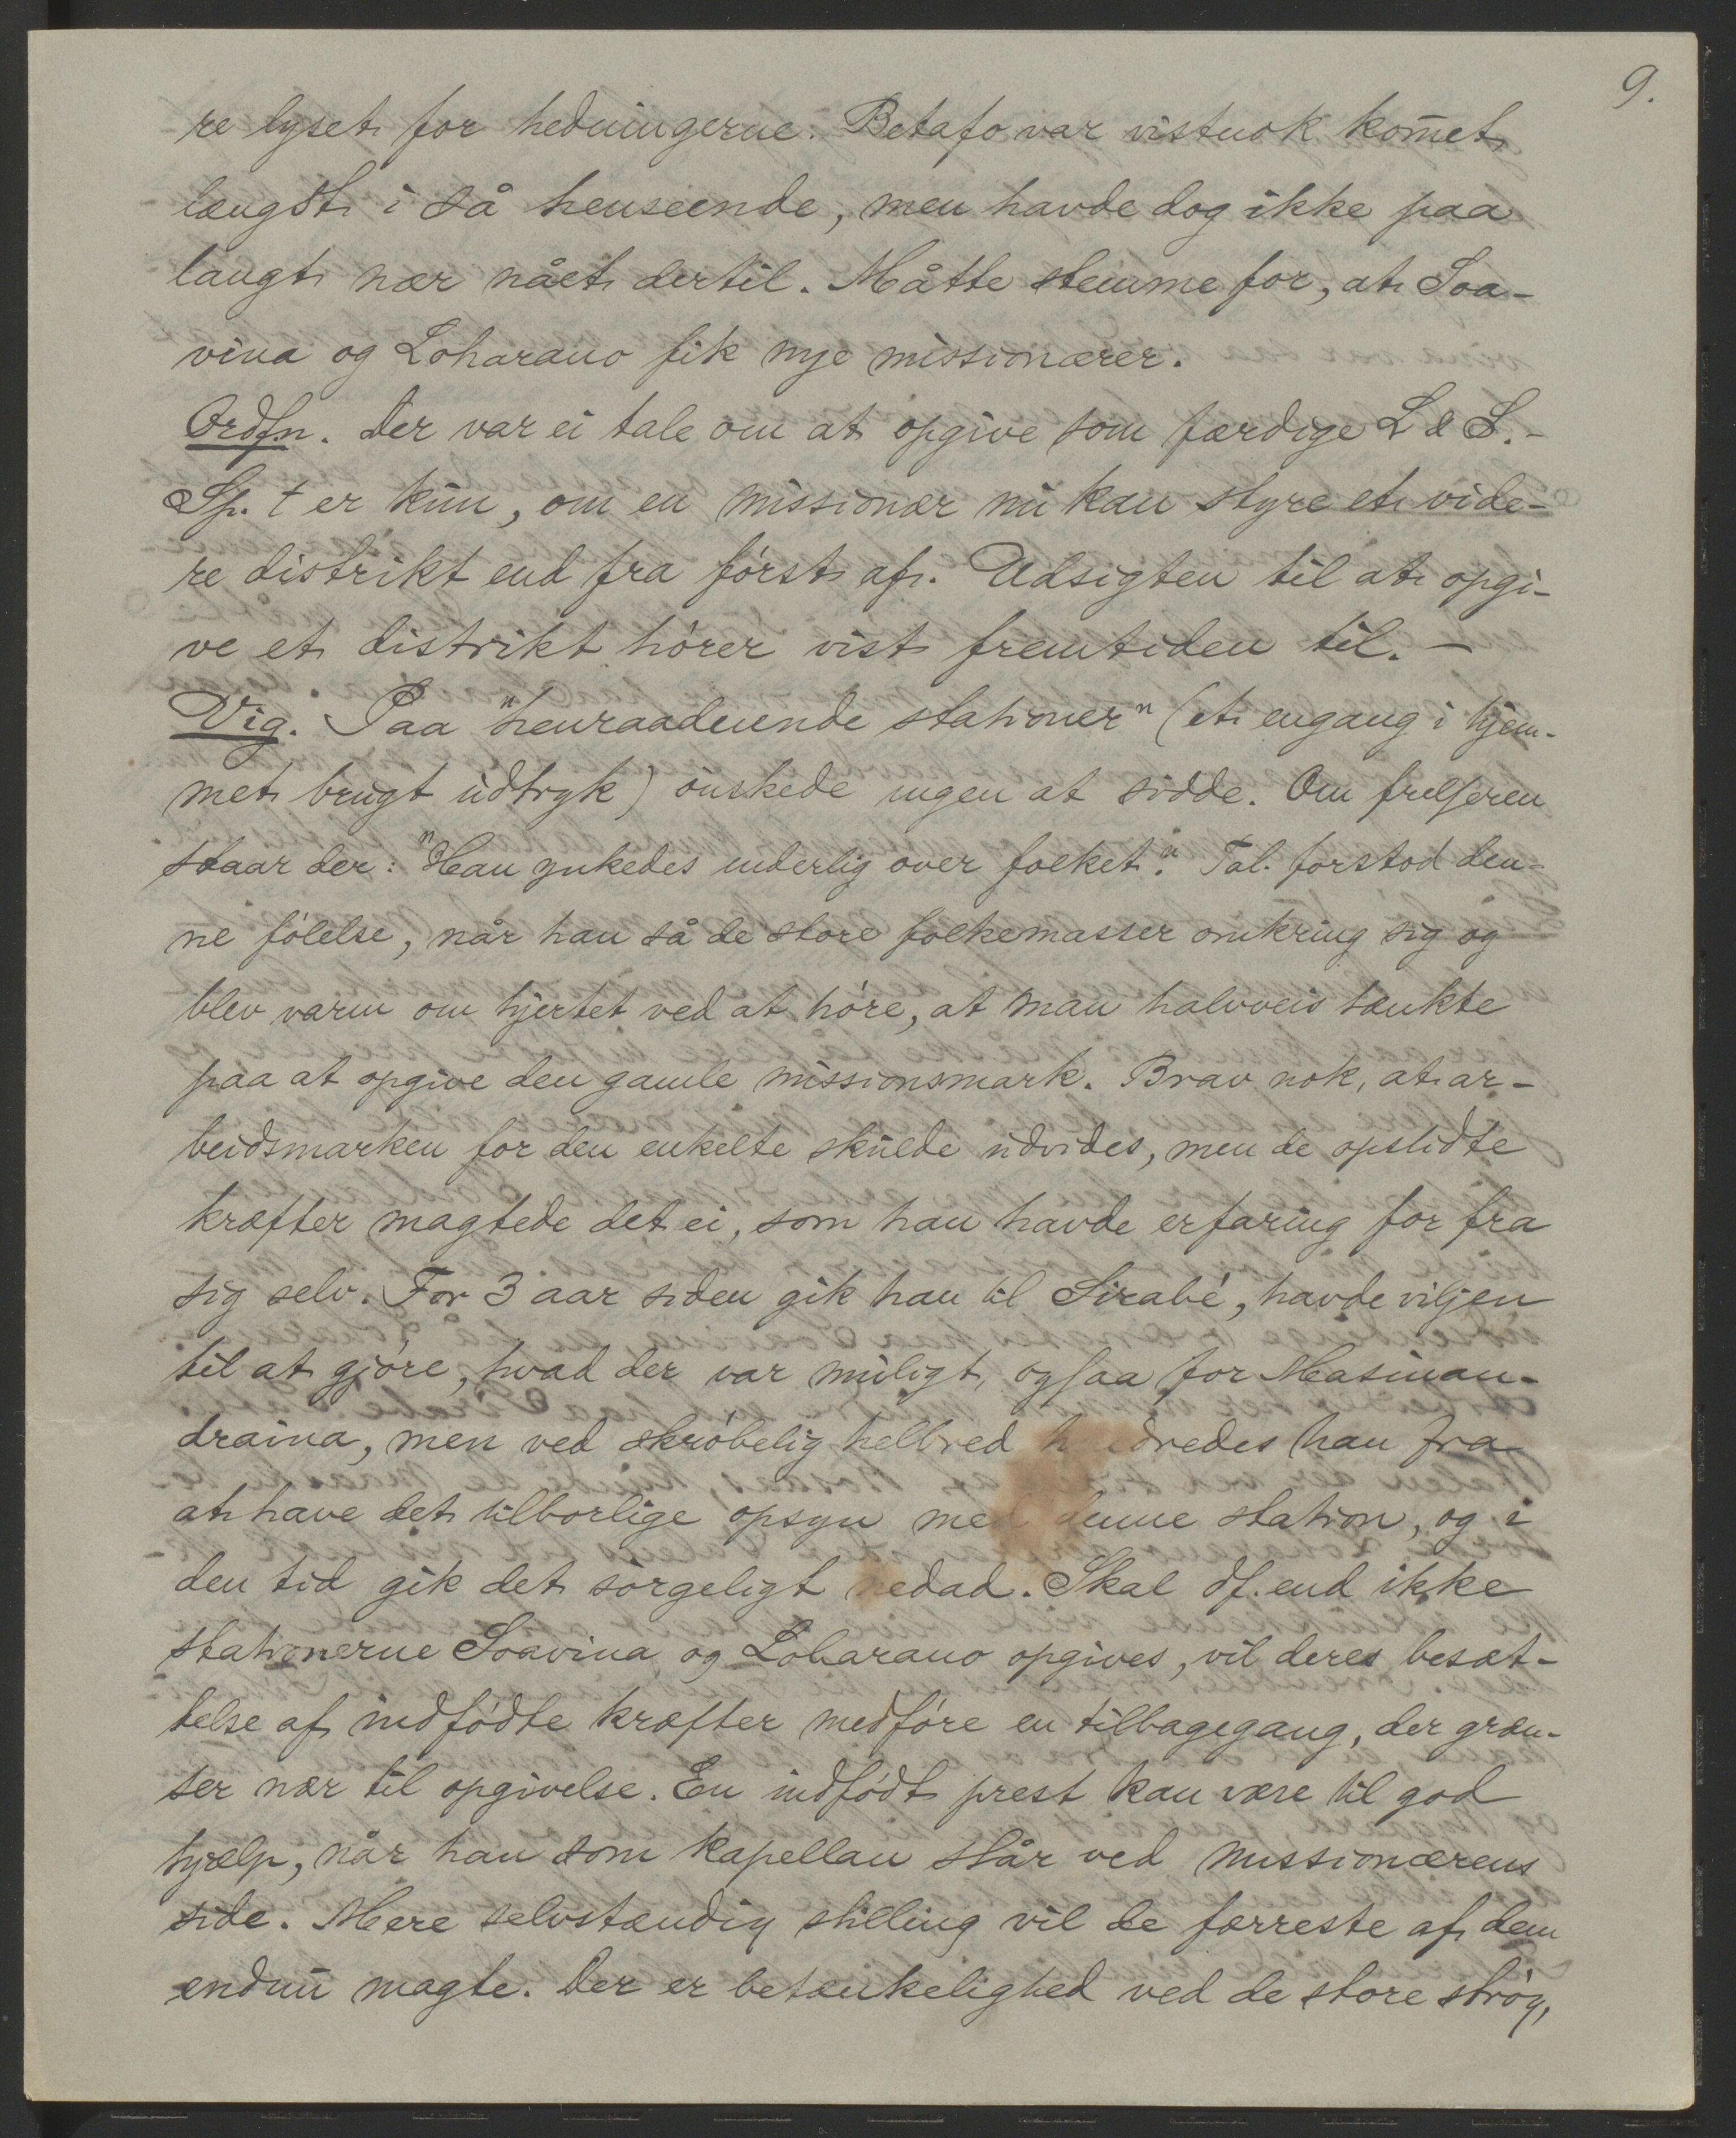 9.
re lyset for hedningerne. Betafo var vistnok kom̄et
længst i så henseende, men havde dog ikke paa
langt nær nået dertil. Måtte stemme for, at Soa-
vina og Loharano fik nye missionærer.
Ordfn. Der var ei tale om at opgive som færdige L & S.-
Sp. t er kun, om en missionær nu kan styre et vide-
re distrikt end fra først af. Udsigten til at opgi-
ve et distrikt hører vist fremtiden til. —
Vig. Paa "henraadnende stationer" (et engang i hjem-
met brugt udtryk) ønskede ingen at sidde. Om frelseren
staar der: "Han ynkedes inderlig over folket". Tal. forstod den-
ne følelse, når han så de store folkemasser omkring sig og
blev varm om hjertet ved at høre, at man halvveis tænkte
paa at opgive den gamle missionsmark. Brav nok, at ar-
beidsmarken for den enkelte skulde udvides, men de opslidte
kræfter magtede det ei, som han havde erfaring for fra
sig selv. For 3 aar siden gik han til Sirabé, havde viljen
til at gjøre, hvad der var muligt, ogsaa for Masinan-
draina, men ved skrøbelig helbred hindredes han fra
at have det tilbørlige opsyn med denne station, og i
den tid gik det sørgeligt nedad. Skal df. end ikke
stationerne Soavina og Loharano opgives, vil deres besæt-
telse af indfødte kræfter medføre en tilbagegang, der græn-
ser nær til opgivelse. En indfødt prest kan være til god
hjælp, når han som kapellan står ved missionærens
side. Mere selvstændig stilling vil de færreste af dem
endnu magte. Der er betænkelighed ved de store strøg,